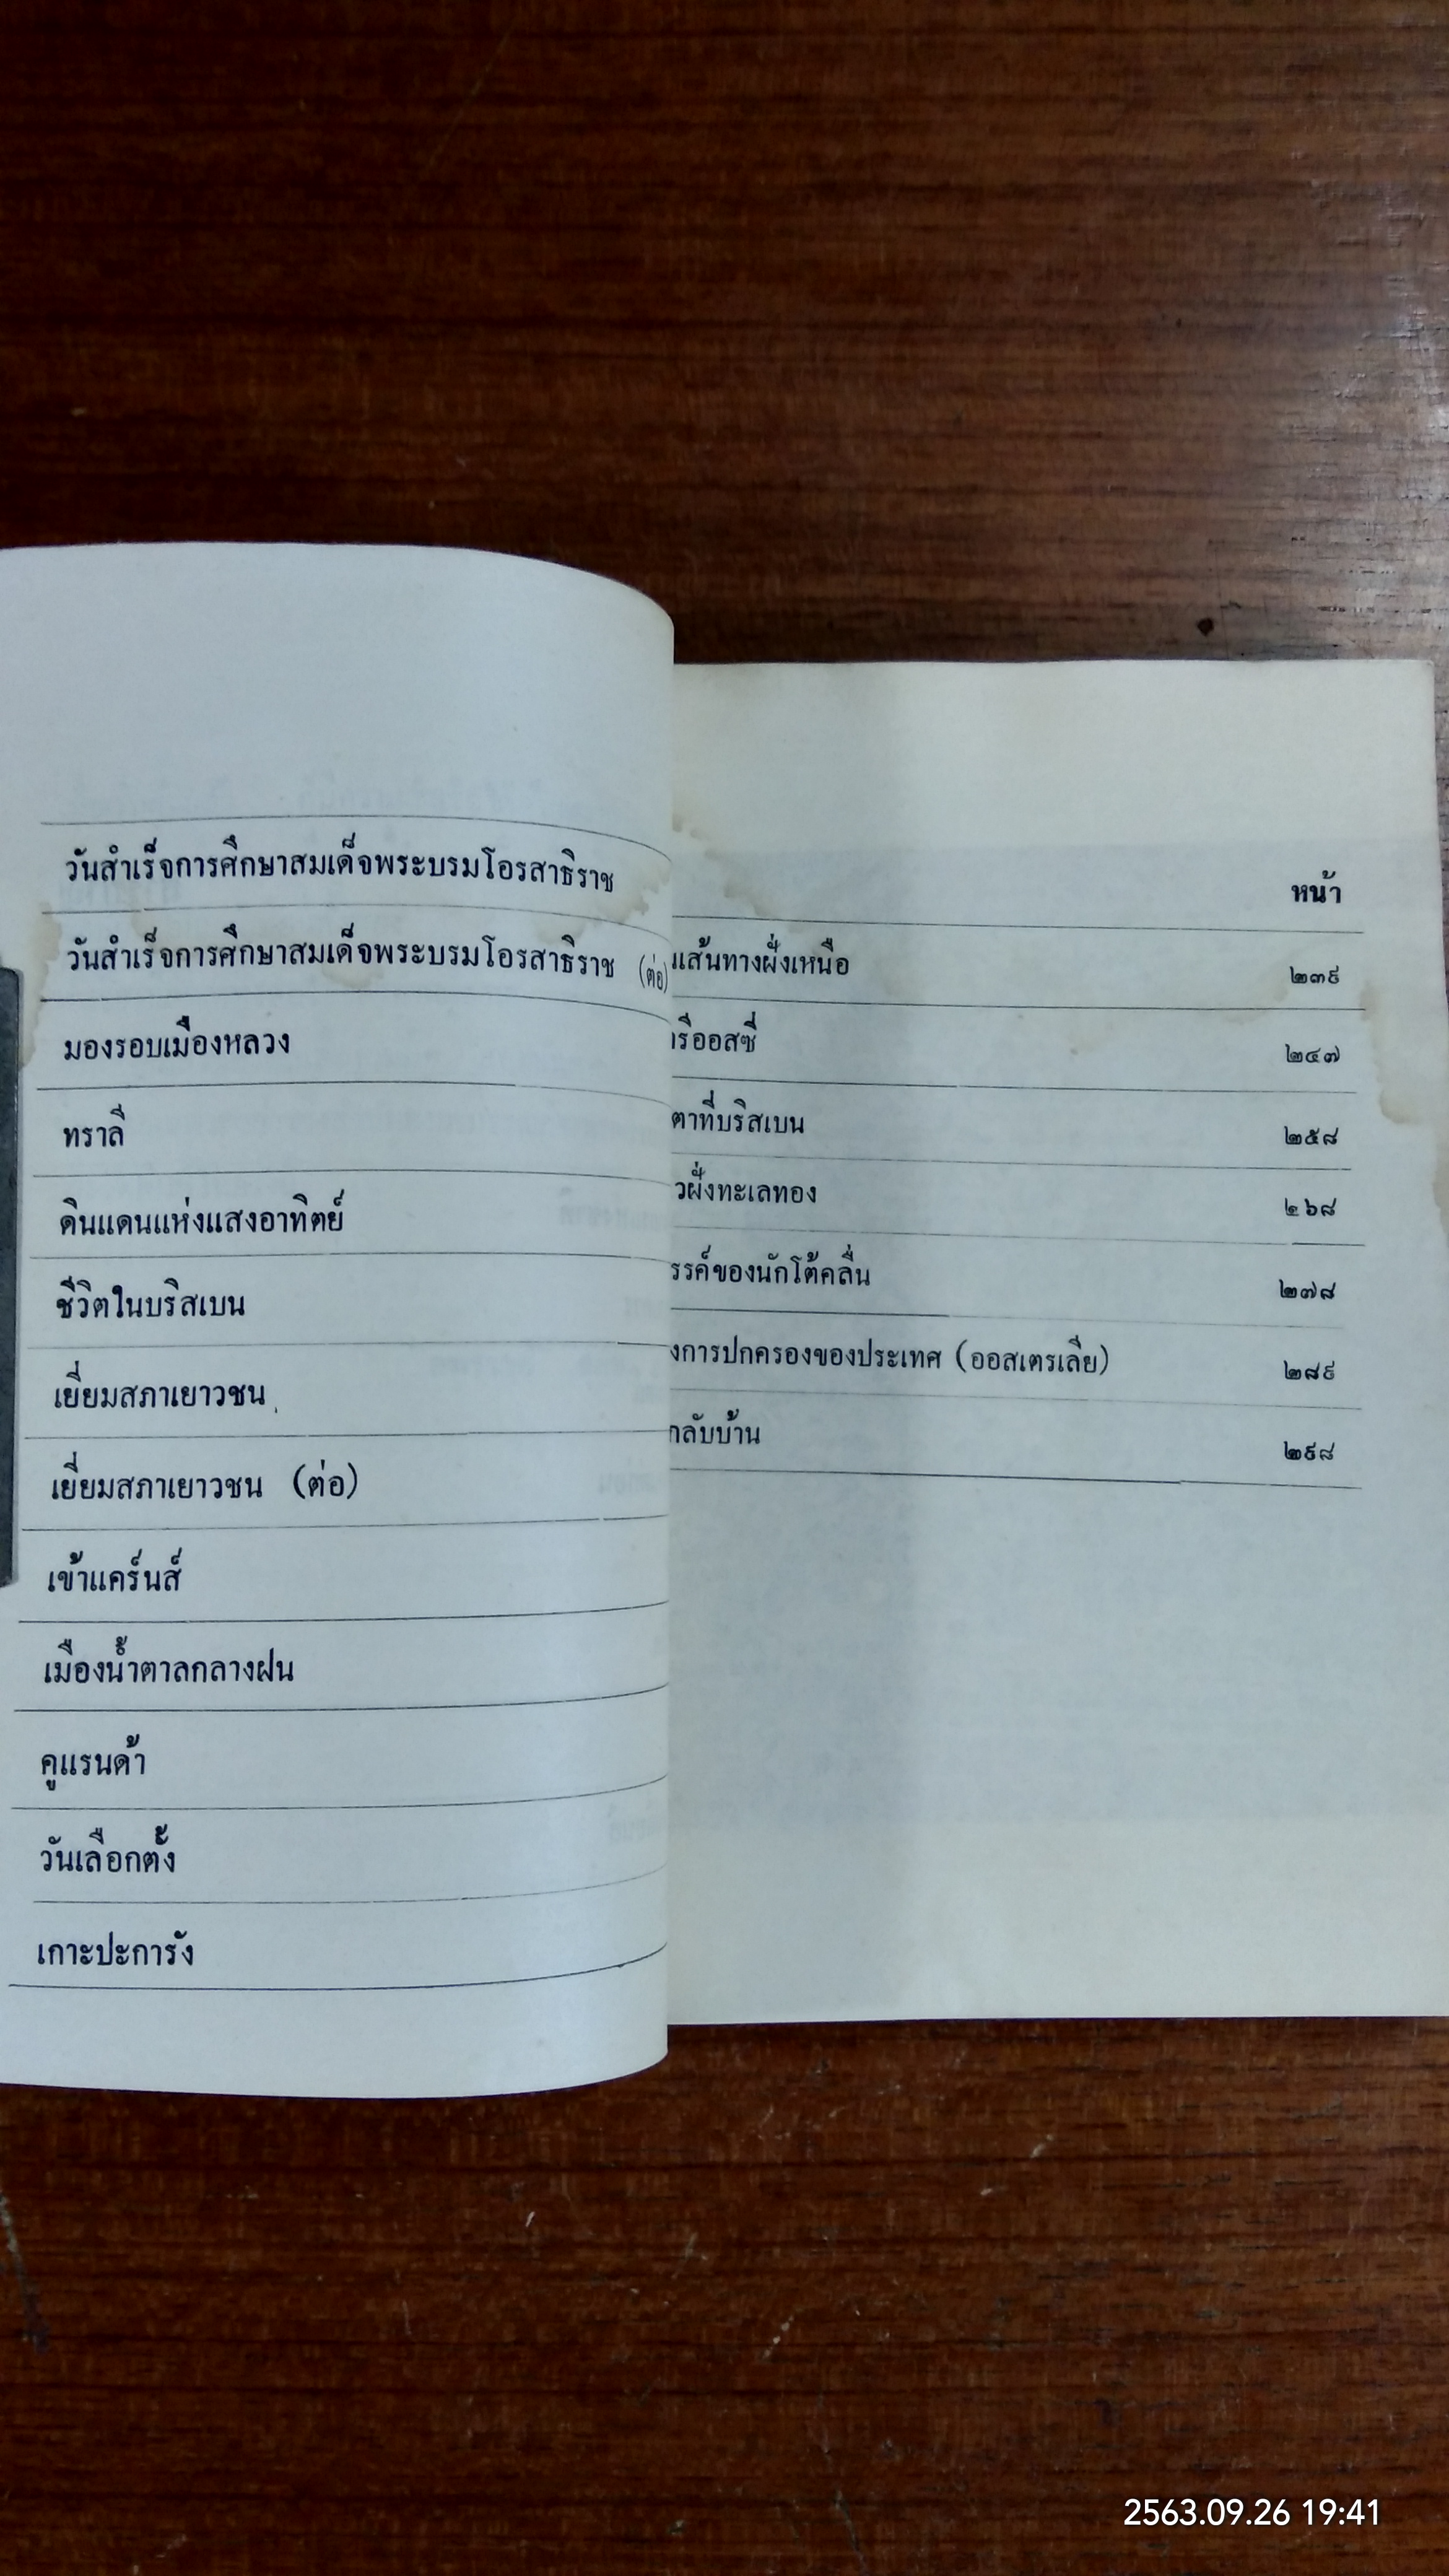 วันสำเร็จการศึกษาสมเด็จพระบรมโอรสาธิราช
วันสำเร็จการศึกษาสมเด็จพระบรมโอรสาธิราช (ต่อ)
มองรอบเมืองหลวง
ทราลี
ดินแดนแห่งแสงอาทิตย์
ชีวิตในบริสเบน
เยี่ยมสภาเยาวชน
เยี่ยมสภาเยาวชน (ต่อ)
เข้าแคร์นส์
เมืองน้ำตาลกลางฝน
คูแรนด้า
วันเลือกตั้ง
เกาะปะการัง
หน้า
แส้นทางฝั่งเหนือ ๒๓๙
ารีออสซี่ ๒๔๗
ตาที่บริสเบน ๒๕๘
วฝั่งทะเลทอง ๒๖๘
รรค์ของนักโต้คลื่น ๒๗๘
งการปกครองของประเทศ (ออสเตรเลีย) ๒๘๙
กลับบ้าน ๒๙๘
2563.09.26 19:41